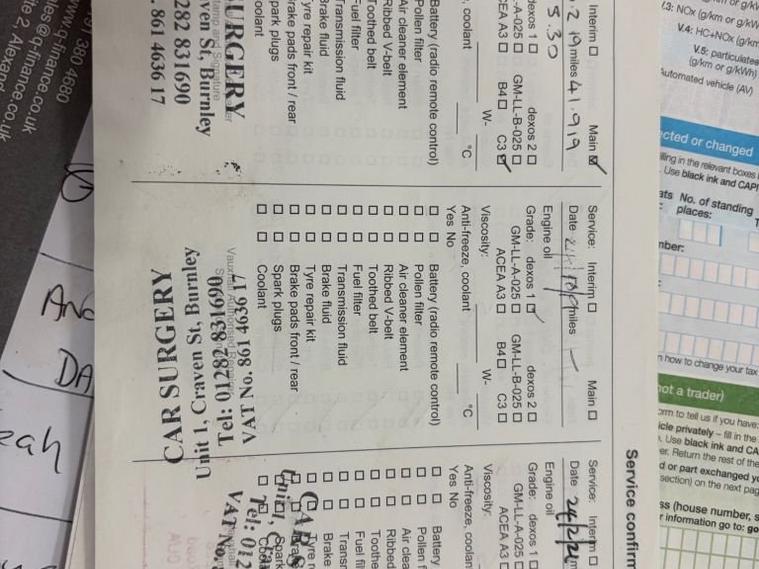 Service confirm
Interim ☐ Main ☑
2 19 miles 41,919
5.30
dexos 1 ☐ dexos 2 ☐
-A-025 ☐ GM-LL-B-025 ☐
CEA A3 ☐ B4 ☐ C3 ☑
W-
, coolant °C
Battery (radio remote control)
Pollen filter
Air cleaner element
Ribbed V-belt
Toothed belt
Fuel filter
Transmission fluid
Brake fluid
Tyre repair kit
Brake pads front / rear
Spark plugs
Coolant
SURGERY
Stamp and Signature
aven St, Burnley
282 831690
. 861 4636 17
Service: Interim ☐ Main ☐
Date miles
Engine oil
Grade: dexos 1 ☑ dexos 2 ☐
GM-LL-A-025 ☐ GM-LL-B-025 ☐
ACEA A3 ☐ B4 ☐ C3 ☐
Viscosity: W-
Anti-freeze, coolant °C
Yes No
☐ ☐ Battery (radio remote control)
☐ ☐ Pollen filter
☐ ☐ Air cleaner element
☐ ☐ Ribbed V-belt
☐ ☐ Toothed belt
☐ ☐ Fuel filter
☐ ☐ Transmission fluid
☐ ☐ Brake fluid
☐ ☐ Tyre repair kit
☐ ☐ Brake pads front / rear
☐ ☐ Spark plugs
☐ ☐ Coolant
Vauxhall Authorised
CAR SURGERY
Unit 1, Craven St, Burnley
Tel: 01282 831690
VAT No. 861 4636 17
Service: Interim ☐
Date 24/2/2
Engine oil
Grade: dexos 1 ☐
GM-LL-A-025 ☐
ACEA A3 ☐
Viscosity:
Anti-freeze, coolan
Yes No
☐ ☐ Battery
☐ ☐ Pollen f
☐ ☐ Air clea
☐ ☐ Ribbed
☐ ☐ Toothe
☐ ☐ Fuel fil
☐ ☐ Transr
☐ ☐ Brake
Tyre r
Brake
Spark
Coola
CAR S
Unit 1, Cra
Tel: 012
VAT No.
L3: NOx (g/km or g/kW
V.4: HC+NOx (g/km
V.5: particulates
(g/km or g/kWh)
Automated vehicle (AV)
cted or changed
illing in the relevant boxes
. Use black ink and CAPI
ats No. of standing
: places:
mber:
n how to change your tax
not a trader)
orm to tell us if you have:
icle privately – fill in the
. Use black ink and CA
er. Return the rest of the
d or part exchanged yo
section) on the next pag
ss (house number, s
r information go to: go
ite 2, Alexand
www.q-finance.co.uk
les@q-finance.co.uk
380 4680
AND
DA
eah